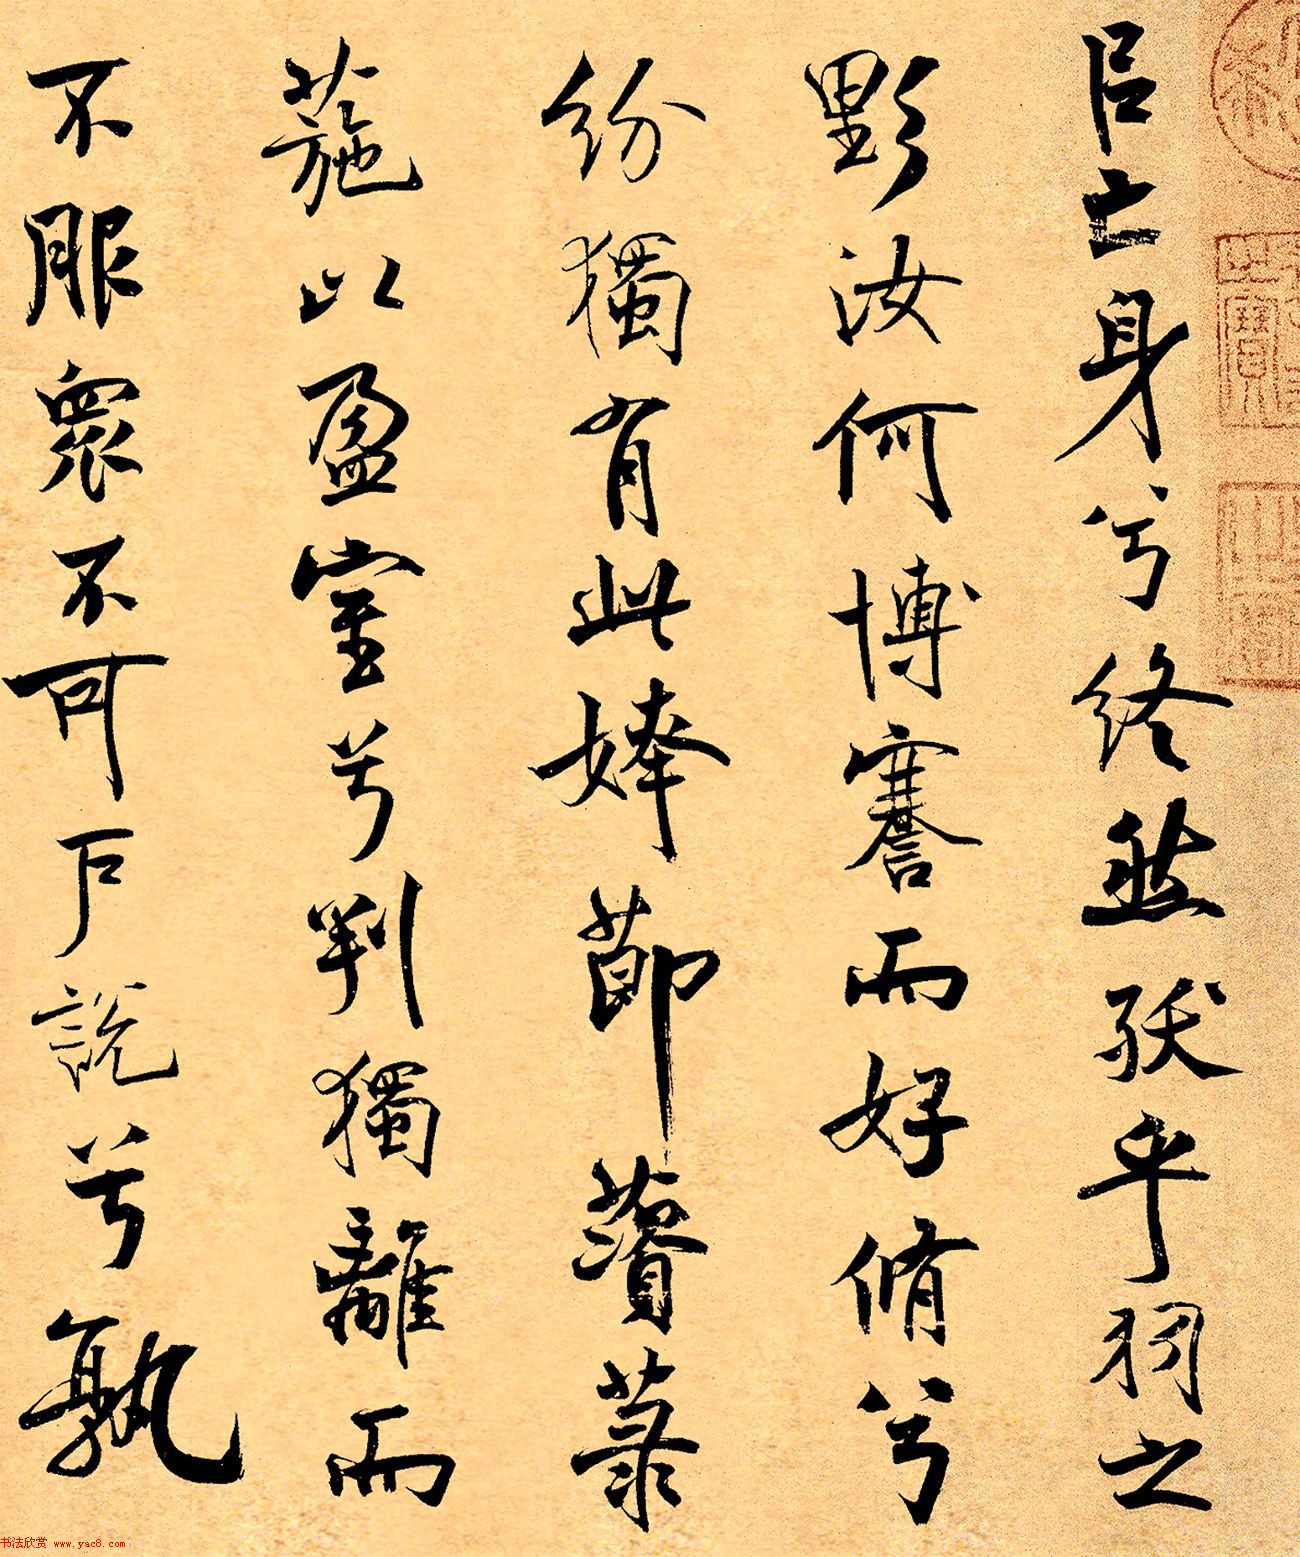 㠯亡身兮終然殀乎羽之
野汝何博謇而好脩兮
紛獨有此姱節薋菉
葹以盈室兮判獨離而
不服眾不可戶說兮孰
书法欣赏 www.yac8.com